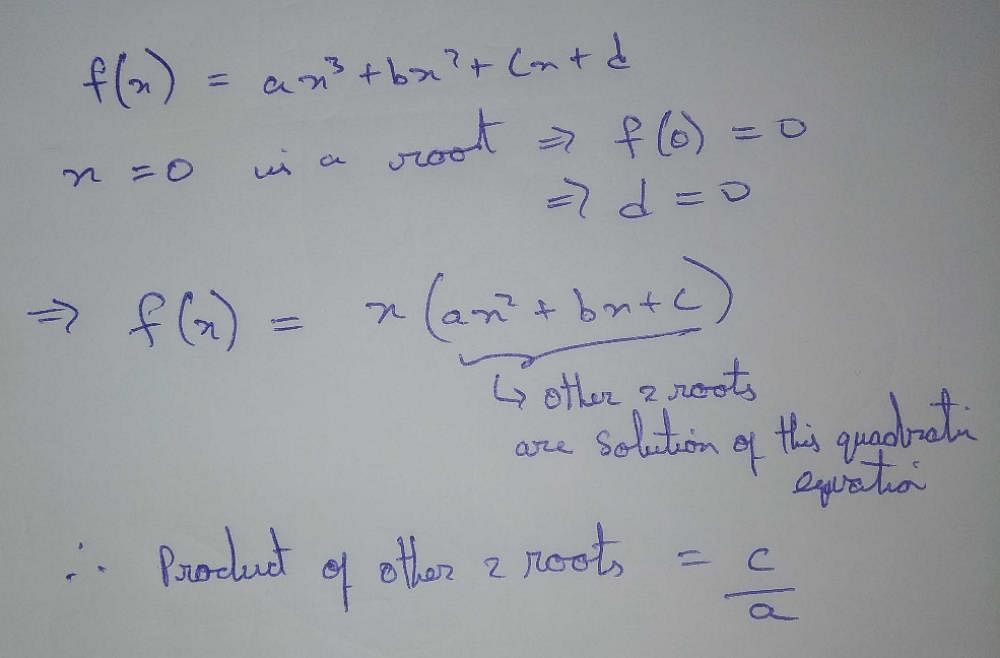 f(x) = ax³ + bx² + Cx + d
x = 0 is a root ⇒ f(0) = 0
⇒ d = 0
⇒ f(x) = x(ax² + bx + c)
↳ other 2 roots
are solution of this quadratic
equation
∴ Product of other 2 roots = c/a